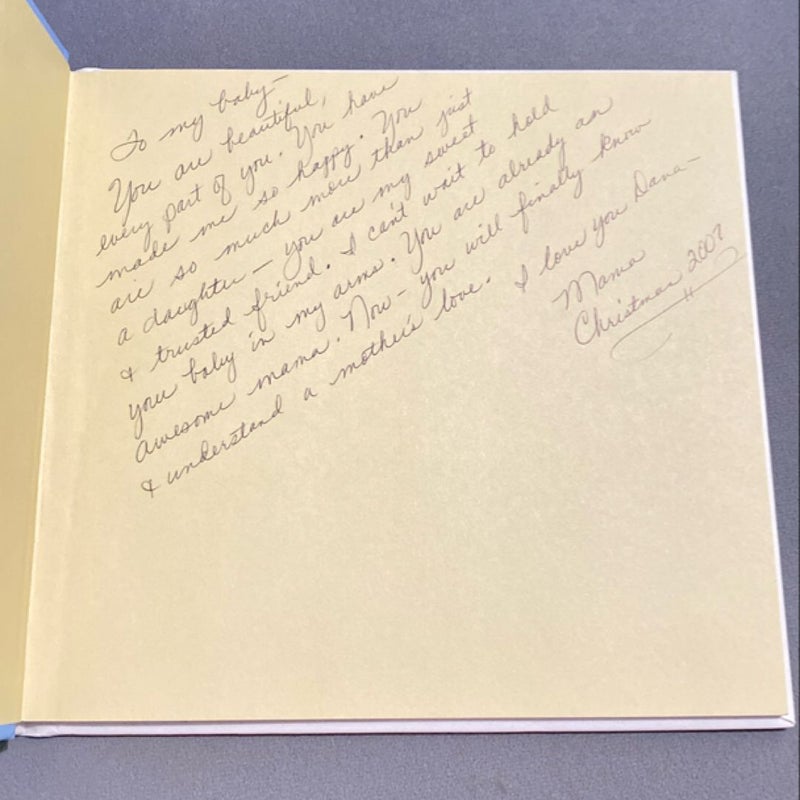 To my baby-
You are beautiful,
every part of you. You have
made me so happy. You
are so much more than just
a daughter - you are my sweet
& trusted friend. I can't wait to hold
your baby in my arms. You are already an
awesome mama. Now - you will finally know
& understand a mother's love. I love you Dana-
Mama
Christmas 2007